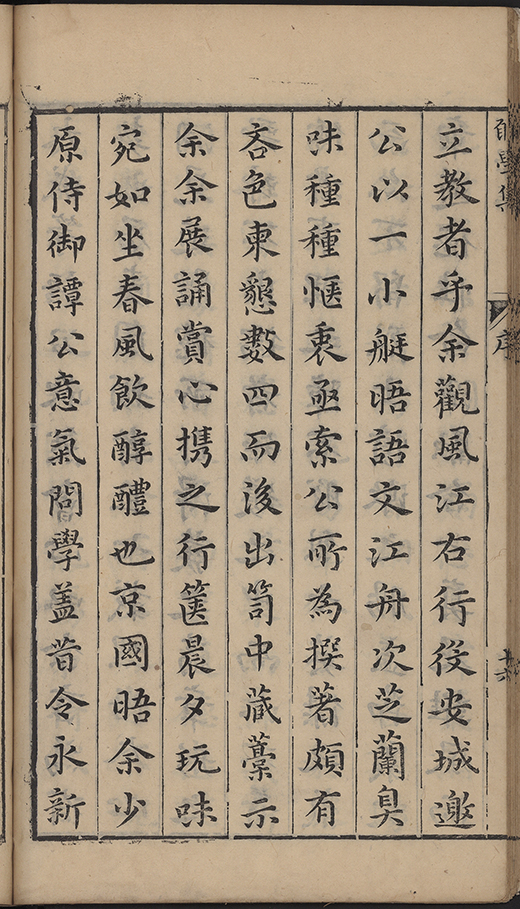 學集
序
立教者乎余觀風江右行役安城邀
公以一小艇晤語文江舟次芝蘭臭
味種種愜衷亟索公所為撰著頗有
吝色柬懇數四而後出笥中藏藁示
余余展誦賞心携之行篋晨夕玩味
宛如坐春風飲醇醴也京國晤余少
原侍御譚公意氣問學蓋昔令永新